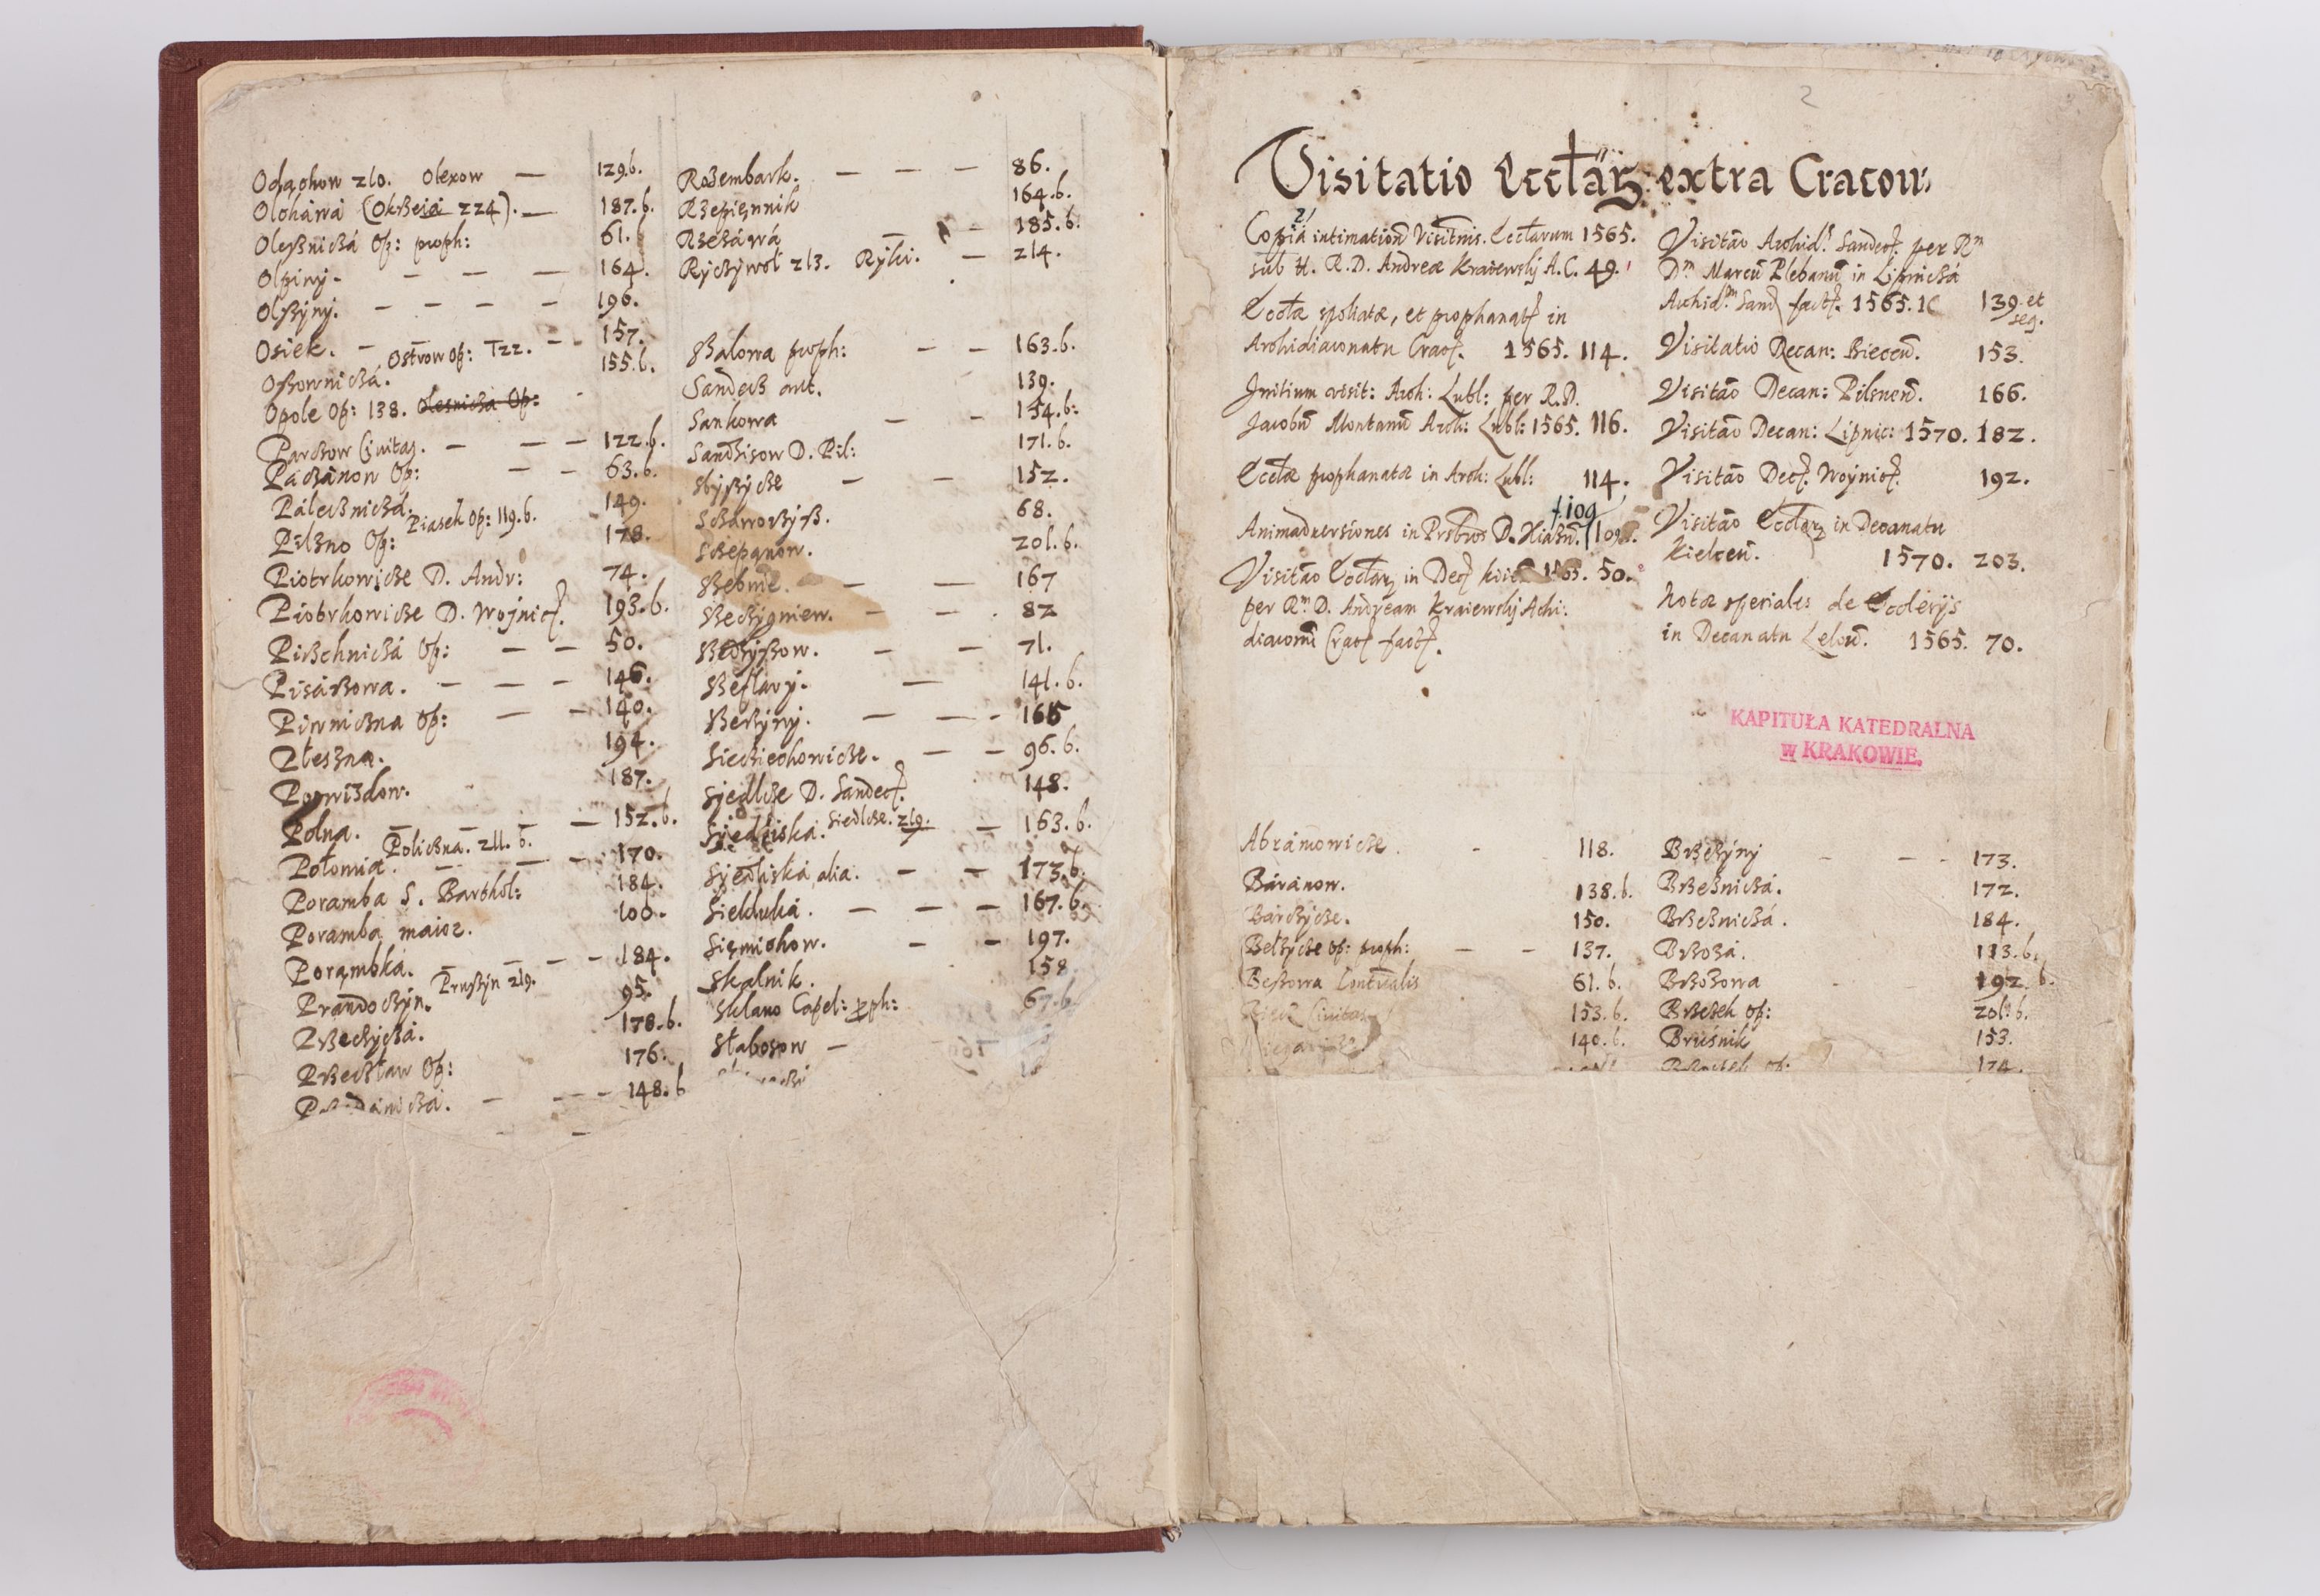 Odąchow 210. Olexow — 129.b.
Olchawá (Okrzeiá 224). — 187.b.
Oleßniczá Op: proph: 61.b
Olpiny. — — — 164.
Olßyny. — — — — 196.
Osiek. — — — — 157.
Ostrow Op: 122.
Oßowniczá. 155.b.
Opole Op: 138. Olesnicza Op:
Parczow Civitas. — — — 122.b.
Páczánow Op: — — 63.b.
Páleczniczá. 149.
Piasek Op: 119.b.
Pilzno Op: 178.
Piotrkowicze D. Andr: 74.
Piotrkowicze D. Woynicz. 193.b.
Pierzchniczá Op: — — 50.
Pisárzowa. — — — 146.
Piwniczna Op: — — 140.
Pleszna. 194.
Pogwizdow. 187.
Polna. — — — — 152.b.
Policzna. 211. b.
Połomia. — — — 170.
Poramba S. Barthol: 184.
Poramba maior. 100.
Porąmbka. — — — 184.
Pruszyn 219.
Prandoczyn. 95.
Przeczyczá. 178.b.
Przecław Op: 176.
— — — 148.b
Rozembark. — — — 86.
Rzepięnnik 164.b.
Rzezáwá — — 185.b.
Ryczywoł 213. Ryki. — 214.
Szalowa proph: — — 163.b.
Sandecz ant. 139.
Sankowa — — 154.b.
Sandzisow D. Pil: 171.b.
Sbyßycze — — 152.
Sczáworzyß. 68.
Sczepanow. 201.b.
Szebnie. — — 167
Szczygniew. — — 82
Szedzyszow. — — 71.
Szeflary. — 141.b.
Szerzyny. — — — 165
Sieciechowicze. — — 96.b.
Siedlcze D. Sandecz. 148.
Siedlcze. 219.
Siedliská. — 163.b.
Siedliská alia. — — 173.b.
Sieklulká. — — — 167.b.
Siemiechow. — — 197.
Skalnik. 158
Sklano Capel: proph: 67.b.
Słaboszow —
2
Visitatio Ecclarz: extra Cracow,
Copia intimation Visitnis. Ecclarum 1565.
sub H. R. D. Andreæ Kraiewsky A. C. 49.
Ecclæ spoliatæ, et prophanatæ in
Archidiaconatu Crac. 1565. 114.
Initium visit: Arch: Lubl: per R. D.
Jacobū Montanū Arch: Lubl: 1565. 116.
Ecclæ prophanatæ in Arch: Lubl: 114.
f. 109
Animadversiones in Prsbros D. Kiażn. 109.
Visitāo Ecclarz in Dec. 1565. 50.
per Rm. D. Andream Kraiewsky Achi:
diaconū Crac fact.
Visitāo Archid. Sandec. per Rm
Dm Marcū Plebanū in Lipniczá
Archid. Sand fact. 1565. 139. et seq.
Visitatio Decan: Biecen. 153.
Visitāo Decan: Pilsnen. 166.
Visitāo Decan: Lipnic: 1570. 182.
Visitāo Dec. Woynic. 192.
Visitāo Ecclarz in Decanatu
Kielcen. 1570. 203.
Notæ speciales de Ecclesijs
in Decanatu Lelow. 1565. 70.
KAPITUŁA KATEDRALNA
w KRAKOWIE.
Abrámowicze. 118.
Báránow. 138.b.
Bárczycze. 150.
Bełzycze Op: proph: — — 137.
Beszowa Contualis 61.b.
Biecz Civitas 153.b.
140.b.
Brzeziny — — — 173.
Brzeźniczá. 172.
Brzeźniczá. 184.
Brzozá. 133.b.
Brzozowa 192.b.
Brzezek Op: 201.b.
Bruśnik 153.
174.